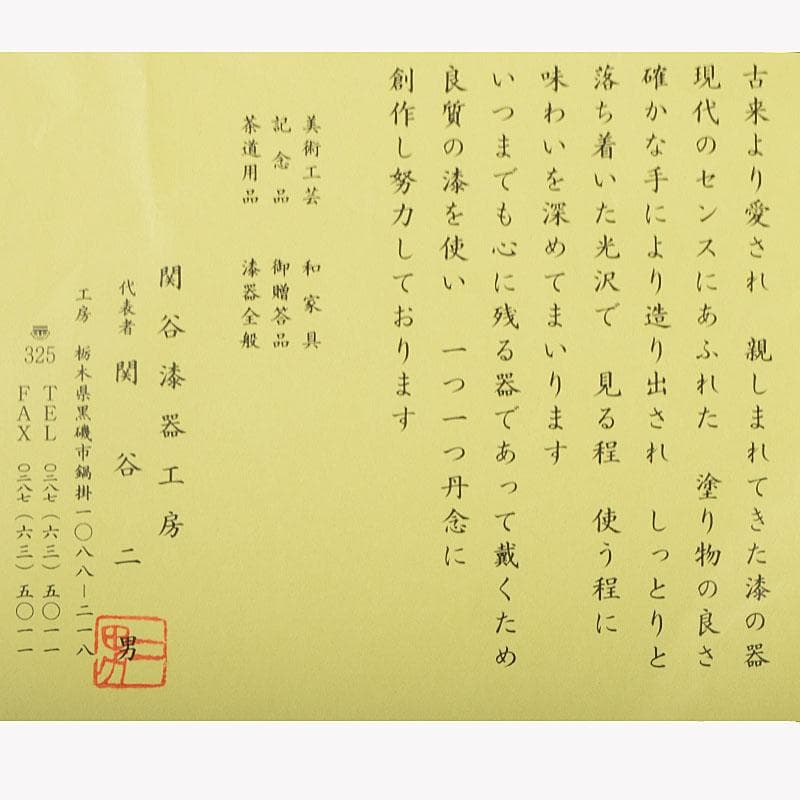 古来より愛され　親しまれてきた漆の器
現代のセンスにあふれた　塗り物の良さ
確かな手により造り出され　しっとりと
落ち着いた光沢で　見る程　使う程に
味わいを深めてまいります
いつまでも心に残る器であって戴くため
良質の漆を使い　一つ一つ丹念に
創作し努力しております
美術工芸　和家具
記念品　御贈答品
茶道用品　漆器全般
関谷漆器工房
代表者　関谷二男
工房　栃木県黒磯市鍋掛一〇八八－二一八
325　TEL　〇二八七（六三）五〇一一
FAX　〇二八七（六三）五〇一一
二男